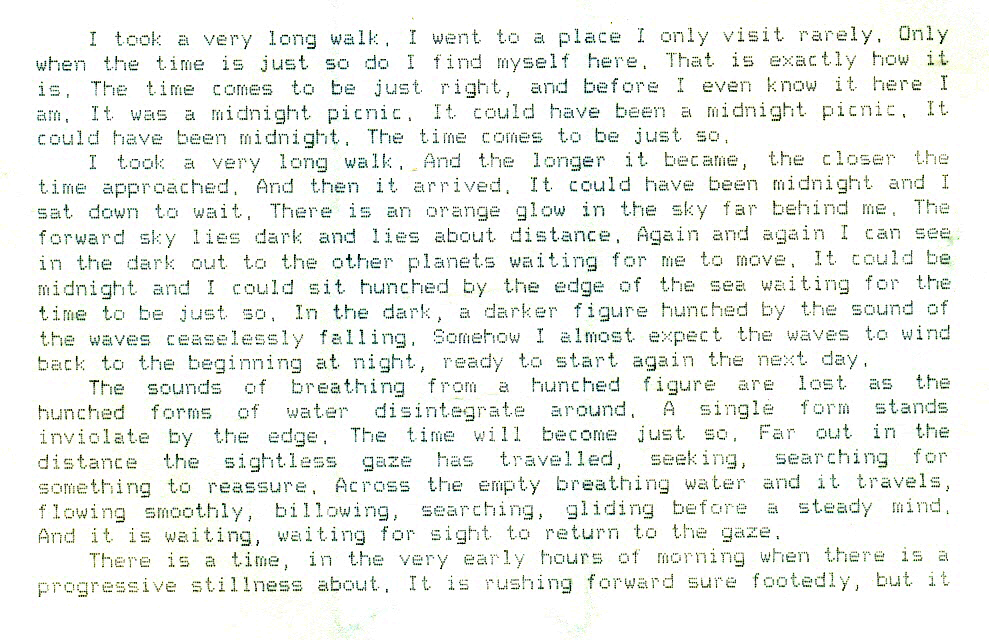 I took a very long walk. I went to a place I only visit rarely. Only
when the time is just so do I find myself here. That is exactly how it
is. The time comes to be just right, and before I even know it here I
am. It was a midnight picnic. It could have been a midnight picnic. It
could have been midnight. The time comes to be just so.
I took a very long walk. And the longer it became, the closer the
time approached. And then it arrived. It could have been midnight and I
sat down to wait. There is an orange glow in the sky far behind me. The
forward sky lies dark and lies about distance. Again and again I can see
in the dark out to the other planets waiting for me to move. It could be
midnight and I could sit hunched by the edge of the sea waiting for the
time to be just so. In the dark, a darker figure hunched by the sound of
the waves ceaselessly falling. Somehow I almost expect the waves to wind
back to the beginning at night, ready to start again the next day.
The sounds of breathing from a hunched figure are lost as the
hunched forms of water disintegrate around. A single form stands
inviolate by the edge. The time will become just so. Far out in the
distance the sightless gaze has travelled, seeking, searching for
something to reassure. Across the empty breathing water and it travels,
flowing smoothly, billowing, searching, gliding before a steady mind.
And it is waiting, waiting for sight to return to the gaze.
There is a time, in the very early hours of morning when there is a
progressive stillness about. It is rushing forward sure footedly, but it